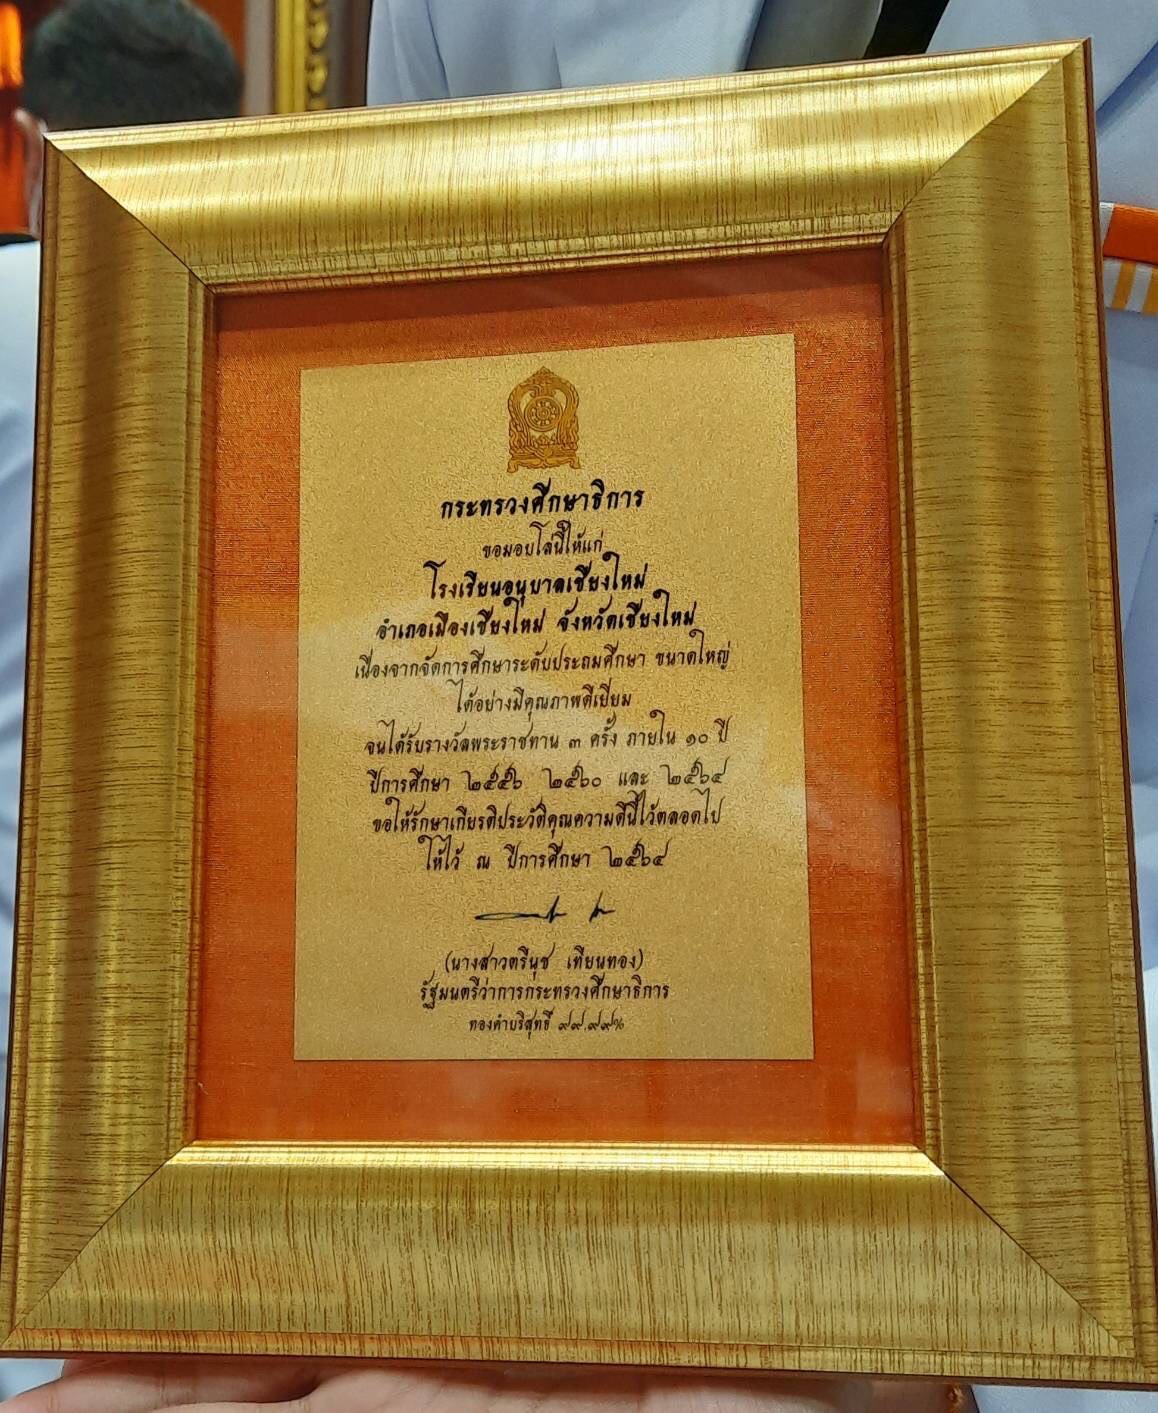 กระทรวงศึกษาธิการ
ขอมอบโล่นี้ให้แก่
โรงเรียนอนุบาลเชียงใหม่
อำเภอเมืองเชียงใหม่ จังหวัดเชียงใหม่
เนื่องจากจัดการศึกษาระดับประถมศึกษา ขนาดใหญ่
ได้อย่างมีคุณภาพดีเยี่ยม
จนได้รับรางวัลพระราชทาน ๓ ครั้ง ภายใน ๑๐ ปี
ปีการศึกษา ๒๕๕๖ ๒๕๖๐ และ ๒๕๖๔
ขอให้รักษาเกียรติประวัติคุณความดีนี้ไว้ตลอดไป
ให้ไว้ ณ ปีการศึกษา ๒๕๖๔
(นางสาวตรีนุช เทียนทอง)
รัฐมนตรีว่าการกระทรวงศึกษาธิการ
ทองคำบริสุทธิ์ ๙๙.๙๙%